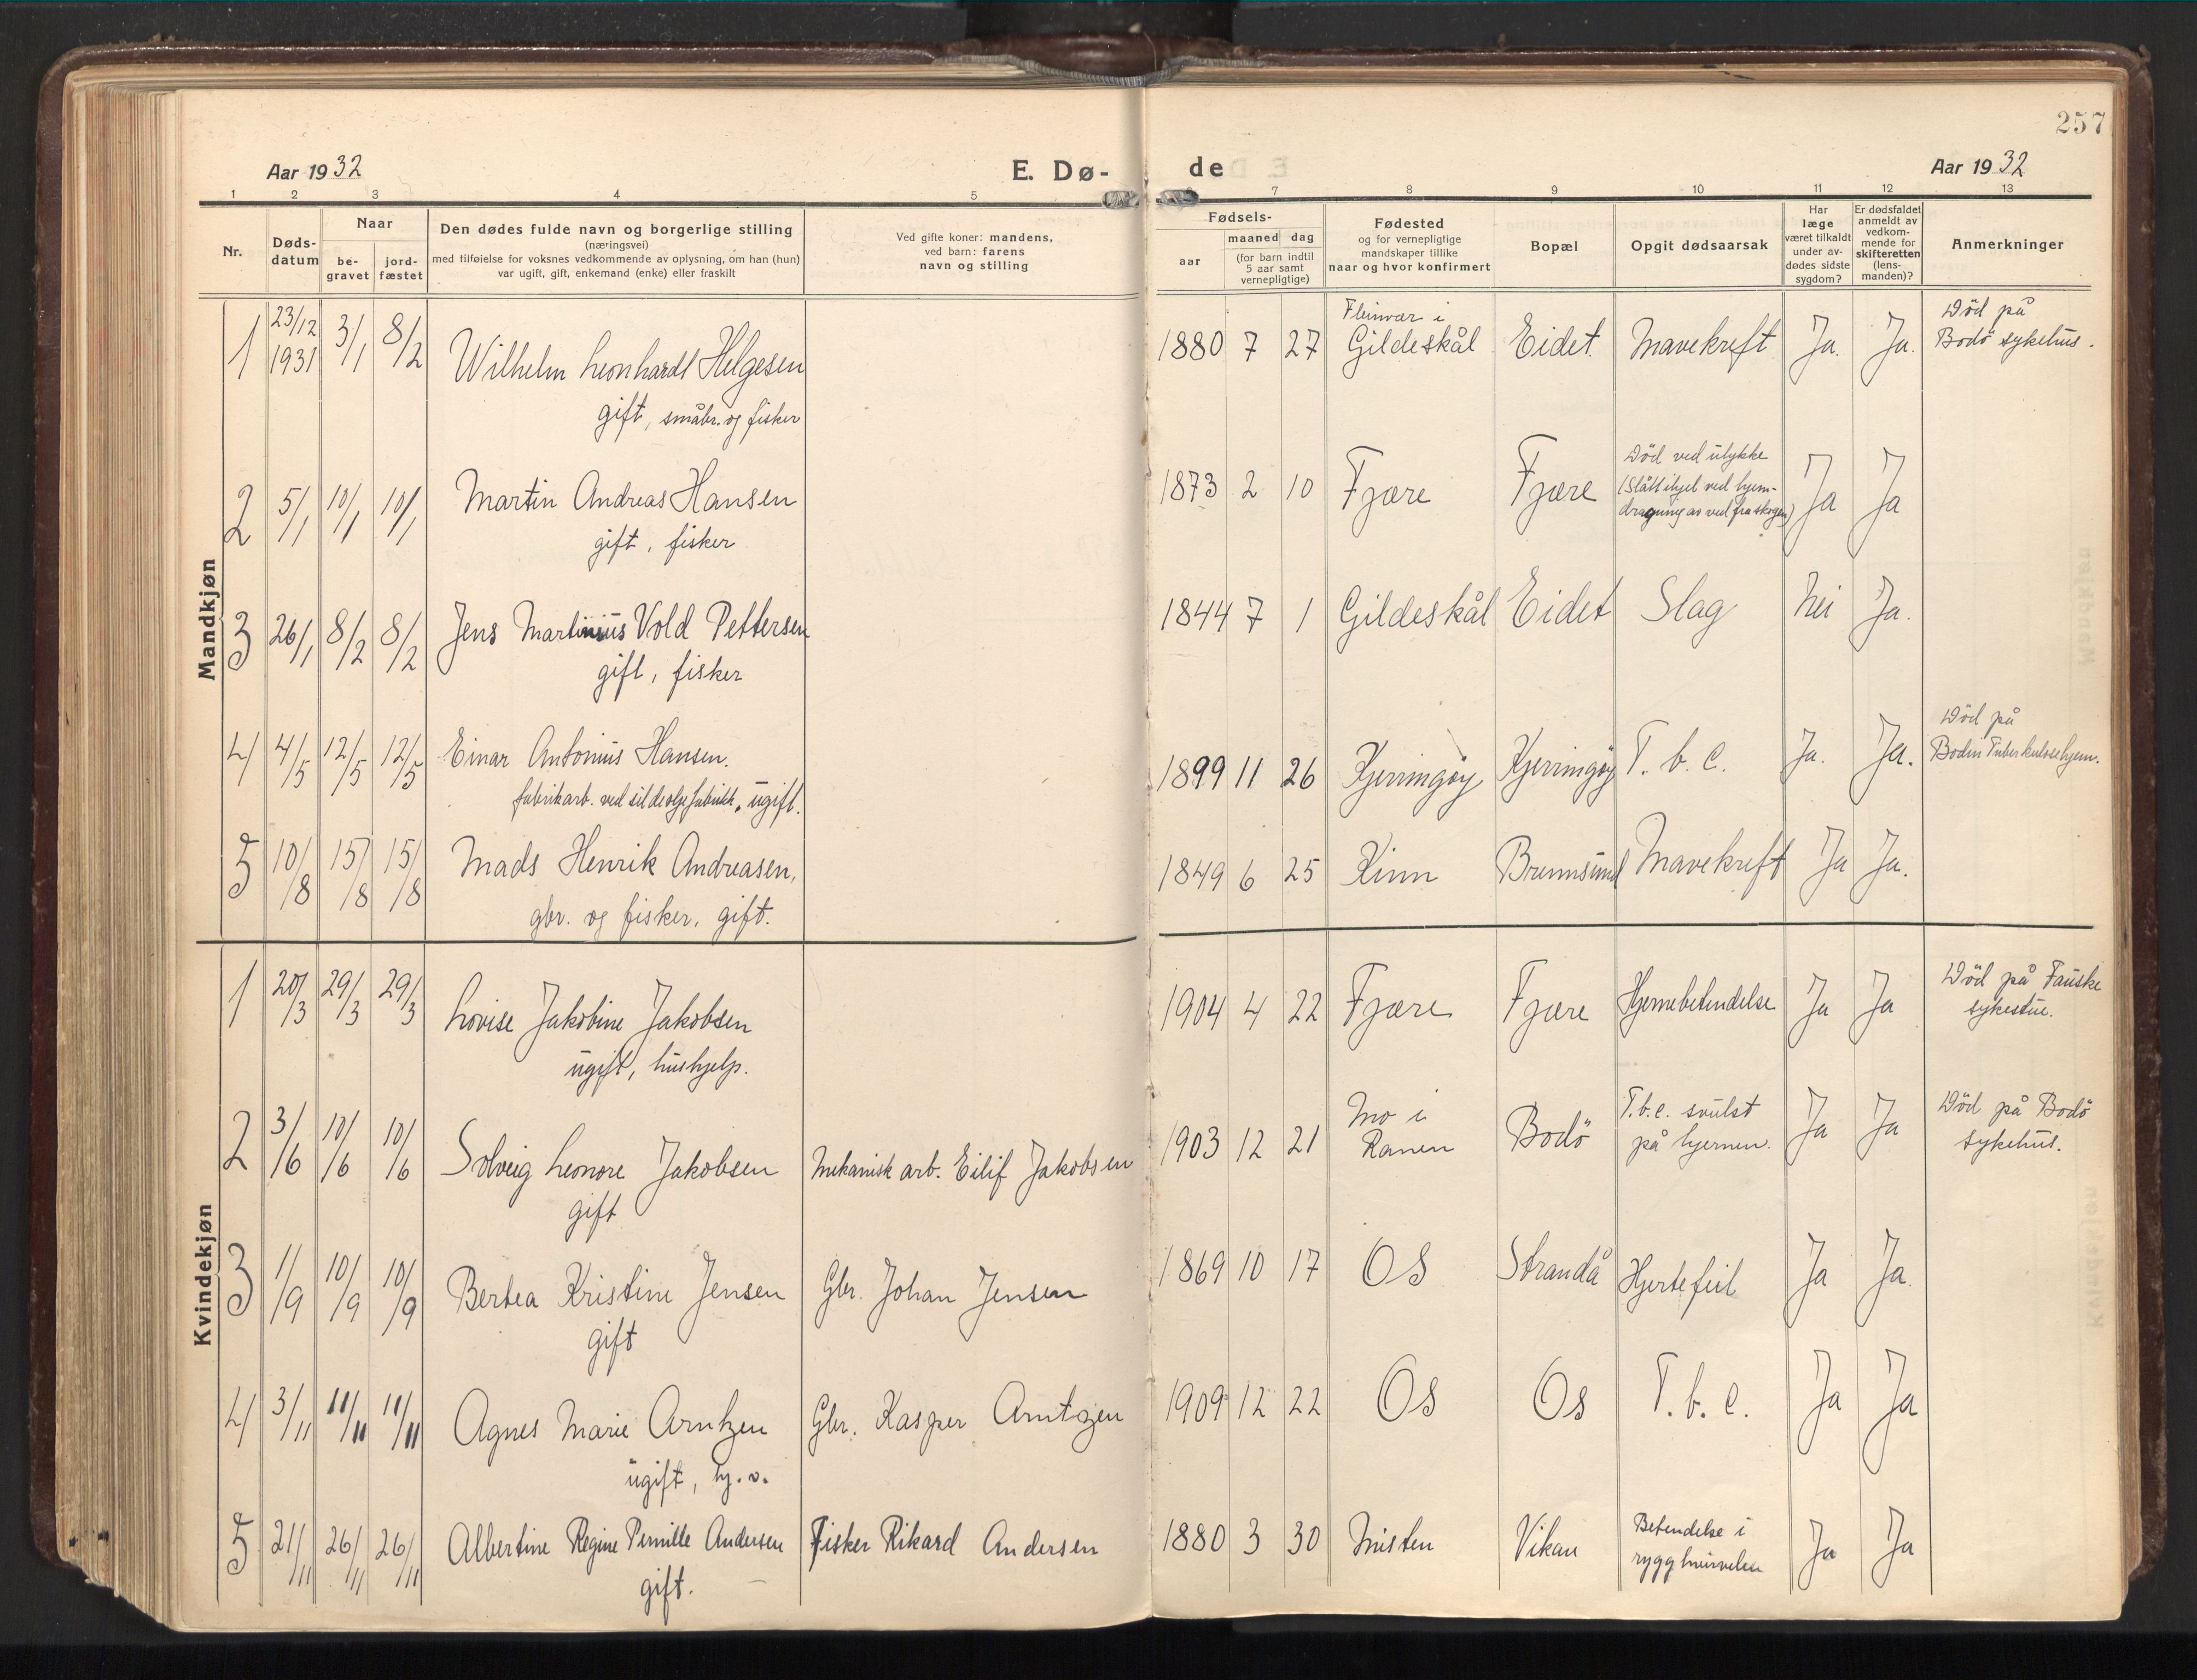 257
Aar 1932
E. Dø-
de
Aar 1932
1 2 3 4 5 6 7 8 9 10 11 12 13
Nr.
Døds-
datum
Naar
be-
gravet
jord-
fæstet
Den dødes fulde navn og borgerlige stilling
(næringsvei)
med tilføielse for voksnes vedkommende av oplysning, om han (hun)
var ugift, gift, enkemand (enke) eller fraskilt
Ved gifte koner: mandens,
ved barn: farens
navn og stilling
Fødsels-
aar
maaned dag
(for barn indtil
5 aar samt
vernepligtige)
Fødested
og for vernepligtige
mandskaper tillike
naar og hvor konfirmert
Bopæl
Opgit dødsaarsak
Har
læge
været tilkaldt
under av-
dødes sidste
sygdom?
Er dødsfaldet
anmeldt av
vedkom-
mende for
skifteretten
(lens-
manden)?
Anmerkninger
Mandkjøn
1 23/12 1931 3/1 8/2 Wilhelm Leonhardt Helgesen
gift, småbr. og fisker
1880 7 27 Fleinvær i
Gildeskål Eidet. Mavekreft Ja. Ja. Död på
Bodö sykehus.
2 5/1 10/1 10/1 Martin Andreas Hansen
gift, fisker
1873 2 10 Fjære Fjære Död ved ulykke
(Slått ihjel ved hjem-
dragning av ved fra skogen) Ja Ja
3 26/1 8/2 8/2 Jens Martinius Vold Pettersen
gift, fisker
1844 7 1 Gildeskål Eidet Slag Nei Ja.
4 4/5 12/5 12/5 Einar Antonius Hansen.
fabrikarb. ved sildeoljefabrikk, ugift.
1899 11 26 Kjerringöy Kjerringöy T. b. c. Ja. Ja. Död på
Bodin Tuberkulosehjem.
5 10/8 15/8 15/8 Mads Henrik Andreasen,
gbr. og fisker, gift.
1849 6 25 Kinn Brennsund Mavekreft Ja Ja.
Kvindekjøn
1 20/3 29/3 29/3 Lovise Jakobine Jakobsen
ugift, hushjelp.
1904 4 22 Fjære Fjære Hjernebetendelse Ja Ja Död på Fauske
sykestue.
2 3/6 10/6 10/6 Solveig Leonore Jakobsen
gift
Mekanisk arb. Eilif Jakobsen
1903 12 21 Mo i
Ranen Bodö T.b.c. svulst
på hjernen. Ja Ja Död på Bodö
sykehus.
3 1/9 10/9 10/9 Bertea Kristine Jensen
gift
Gbr. Johan Jensen
1869 10 17 Os Strandå Hjertefeil Ja Ja.
4 3/11 11/11 11/11 Agnes Marie Arntzen
ugift, hj. v.
Gbr. Kasper Arntzen
1909 12 22 Os Os T. b. c. Ja Ja
5 21/11 26/11 26/11 Albertine Regine Pernille Andersen
gift.
Fisker Rikard Andersen
1880 3 30 Misten Vikan Betendelse i
rygghvirvelen Ja Ja